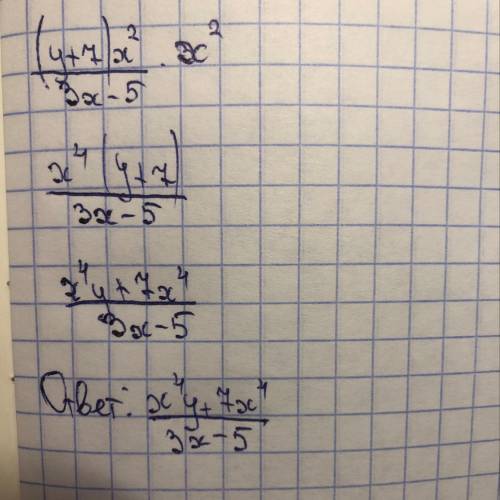 (y+7)x²/3x-5 · x²
x⁴(y+7)/3x-5
x⁴y+7x⁴/3x-5
Ответ: x⁴y+7x⁴/3x-5